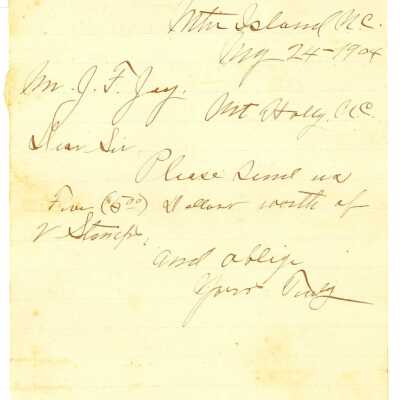 Mtn Island N.C.
Aug 24-1904
Mr. J. F. Jay.
Mt Holly. N.C.
Dear Sir
Please send us
Five ($5.00) Dollars worth of
2 Stamps,
and oblige
Yours Truly